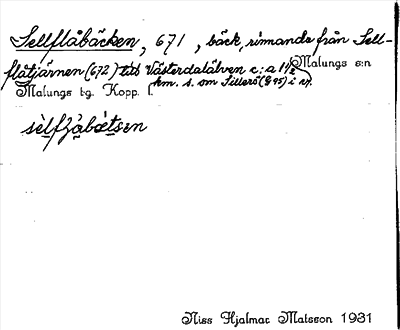 Sellflåbäcken, 671, bäck, rinnande från Sell-
flåtjärnen (672) till Västerdalälven c:a 1½ Malungs sn
Malungs tg. Kopp. l. km. s. om Sillerö (895) i rf.
Niss Hjalmar Matsson 1931